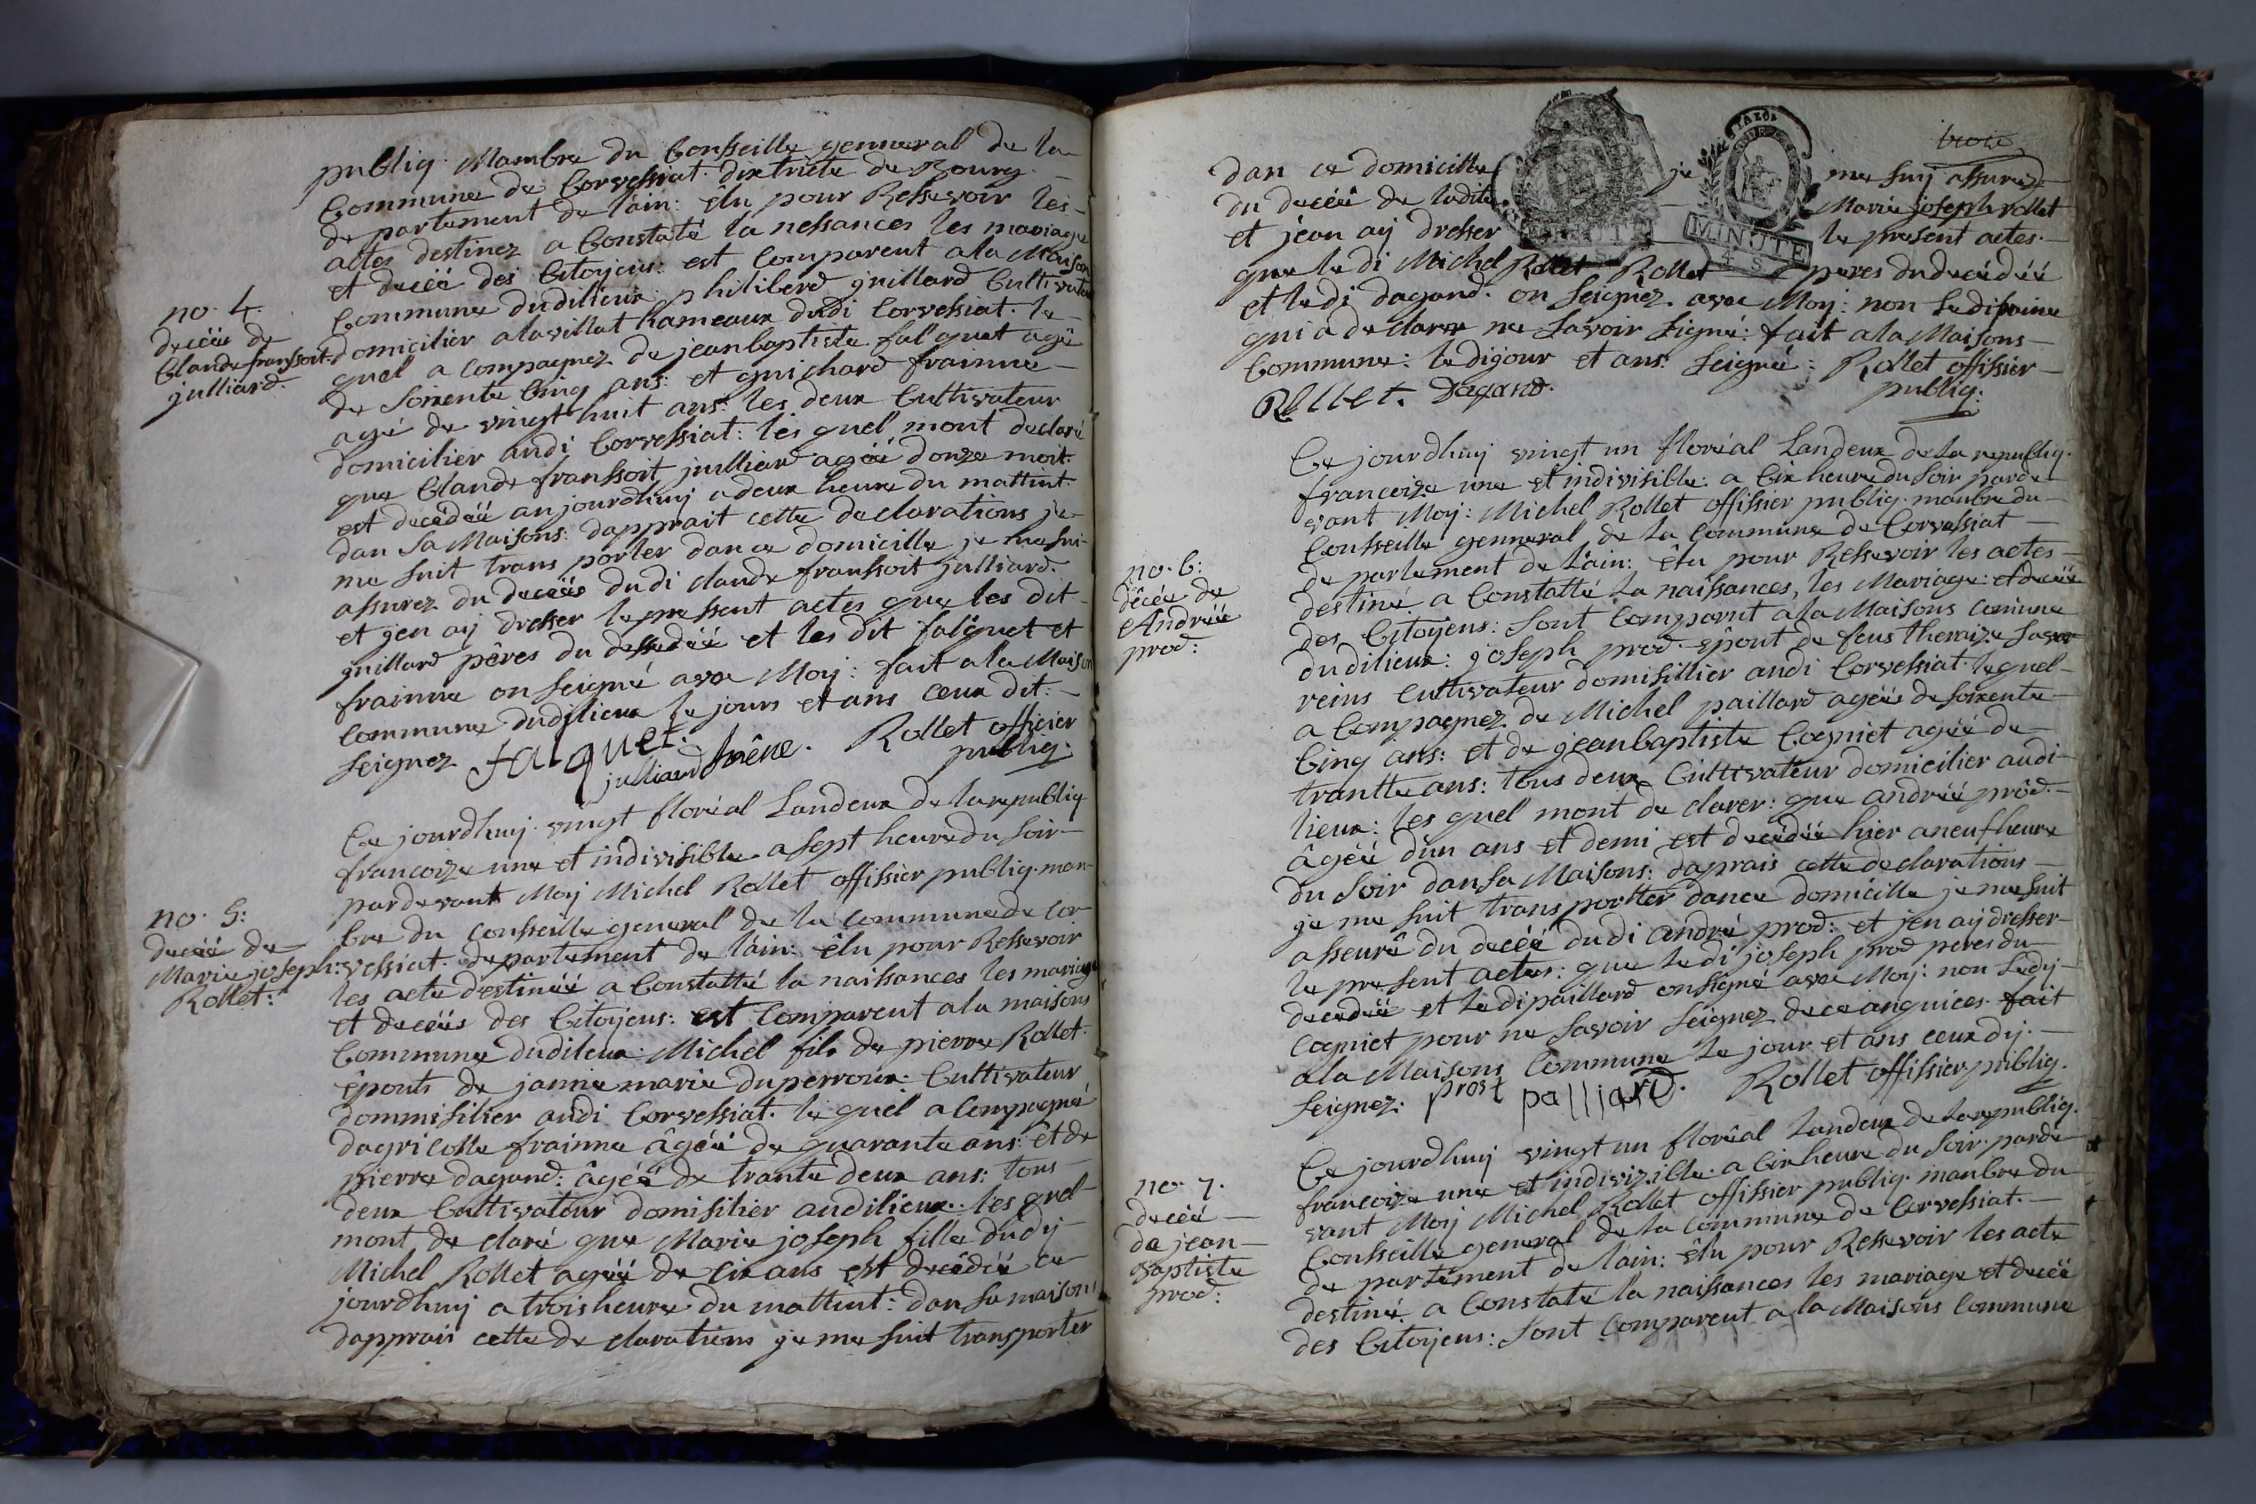 publiq. Mambre du Consseille genneral de la
Commune de Corvessiat. dixtricte de Bourg.
departement de lain: élu pour Ressevoir les
actes destinez a Constaté la nessances les mariage
et decéé des Citoyens: est Comparent a la Maison
Commune dudilieux: philiberd juillard Cultivateur
domicilier a lavillat hameaux dudi Corvessiat. le
quel a Compagnez de jeanbaptiste falquet agé
de soixente Cinq ans: et guichard frainne
agé de vingt huit ans: les deux Cultivateur
domicilier audi Corvessiat: les quel mont declaré
que Claude franssoit julliard agéé donze moit.
est decédéé aujourdhuy a deux heure du mattint.
dan sa Maisons: dapprait cette declarations je
me suit trans porter dan ce domicille je me sui
assurez du decéés dudi claude franssoit julliard.
et jen ay dresser le pressent actes que les dit
juillard pêres du dessedéé et les dit falquet et
frainne on seigné avec Moy: fait a la Maison
commune dudilieux le jours et ans ceux dit:
seignez falquet. julliard frêne. Rollet officier
publiq.
no. 4.
decéé de
Claude franssoit
julliard.
Ce jourdhuy vingt floréal Landeux de la republiq
francoize une et indivisible a sept heure du soir
pardevant Moy Michel Rollet offissier publiq. man-
bre du Consseille general de la commune de Cor
vessiat. departement de lain: élu pour Ressevoir
les acte destinéé a Constatté la naissances les mariage
et decéés des Citoyens: est Comparent a la maisons
Commune dudileux: Michel fils de pierre Rollet.
éponts de jannie marie duperroux: Cultivateur
dommisilier audi Corvessiat. le quel a Compagné
dagricolle frainne âgéé de quarante ans: êt de
pierre dagand: âgéé de trante deux ans: tous
deux Cultivateur domisilier audilieux: les quel
mont de claré que Marie joseph fille dudy
Michel Rollet agéé de Cix ans est decédéé ce
jourdhuy a trois heure du mattint: dan sa maisons
dapprais cette de clarations je me suit transporter
no. 5:
decéé de
Marie joseph:
Rollet:
trois
dan ce domicille je me suij assurez
du decéé de ladite Marie joseph rollet
et jéan ay dresser le present actes.
que le di Michel Rollet Rollet peres du decédéé
et le di dagand. on seignez avec Moy: non le di frainne
qui a declarer ne savoir signé: fait a la Maisons
Commune: le dijour et ans: seigné: Rollet offissier
Rollet. Dagand. publiq:
Ce jourdhuy vingt un floréal Landeux de la republiq.
francoize une et indivisible: a Cix heure du soir parde
vant Moy: Michel Rollet offissier publiq. manbre du
Consseille genneral de la Commune de Corvessiat
de partement de Lain: élu pour Ressevoir les actes
destiné a Constatté la naissances, les Mariage: et decéé
des Citoyens: sont Comparent a la Maisons comune
dudilieux: joseph prod. épont de feus theraize saver
reins Cultivateur domisillier audi Corvessiat. le quel
a Compagnez de Michel paillard agéés de soixente
Cinq ans: et de jeanbaptiste Cogniet agéé de
trantte ans: tous deux Cultivateur domicilier audi
lieux: les quel mont de clarer: que andréé prod.
âgéé dun ans et demi est decédéé hier a neuf heure
du soir dan sa Maisons: daprais cette declarations
je me suit transportter dan ce domicille je me suit
asseuré du decéé dudi andré prod: et jen ay dresser
le present actes: que le di joseph prod peres du
decedéé et le di paillard on signé avec Moy: non le dy
cogniet pour ne savoir seignez de ce anquices. fait
a la Maisons Commune le jour et ans ceux dy.
seignez: prost palliard. Rollet offissier publiq.
no. 6:
décée de
Andréé
prod:
Ce jourdhuy vingt un floréal landeux de la republiq.
francoize une et indivizible: a Cix heure du soir. parde
vant Moy Michel Rollet offissier publiq. manbre du
Consseille general de la Commune de Corvessiat.
de partement de lain: élu pour Ressevoir les acte
destiné a Constaté la naissances les mariage et decéé
des Citoyens: sont Comparent a la Maisons Commune
no. 7.
decéé
de jean
baptiste
prod:
MINUTE
4 S